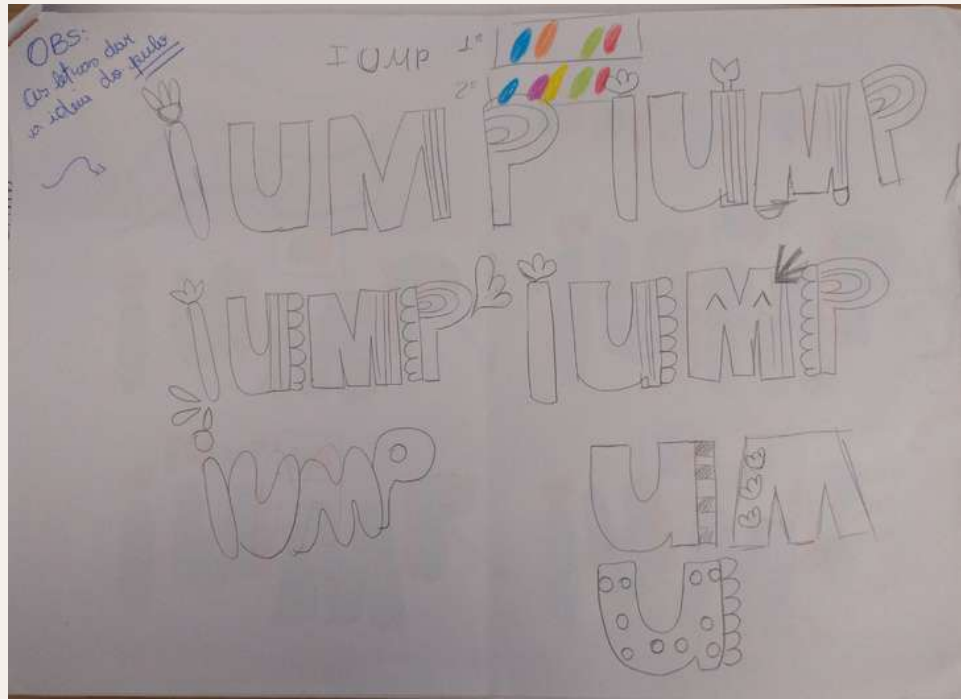 OBS:
as letras dar
a ideia do pulo
IUMP
1ª
2ª
IUMP
IUMP
IUMP
IUMP
IUMP
UM
U